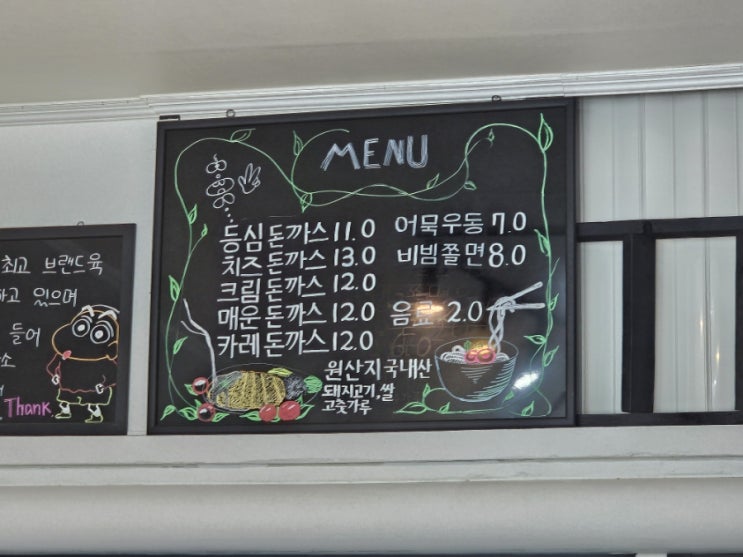 MENU
등심돈까스 11.0
치즈돈까스 13.0
크림돈까스 12.0
매운돈까스 12.0
카레돈까스 12.0
어묵우동 7.0
비빔쫄면 8.0
음료 2.0
원산지 국내산
돼지고기, 쌀
고춧가루
최고 브랜드육
하고 있으며
들어
Thank